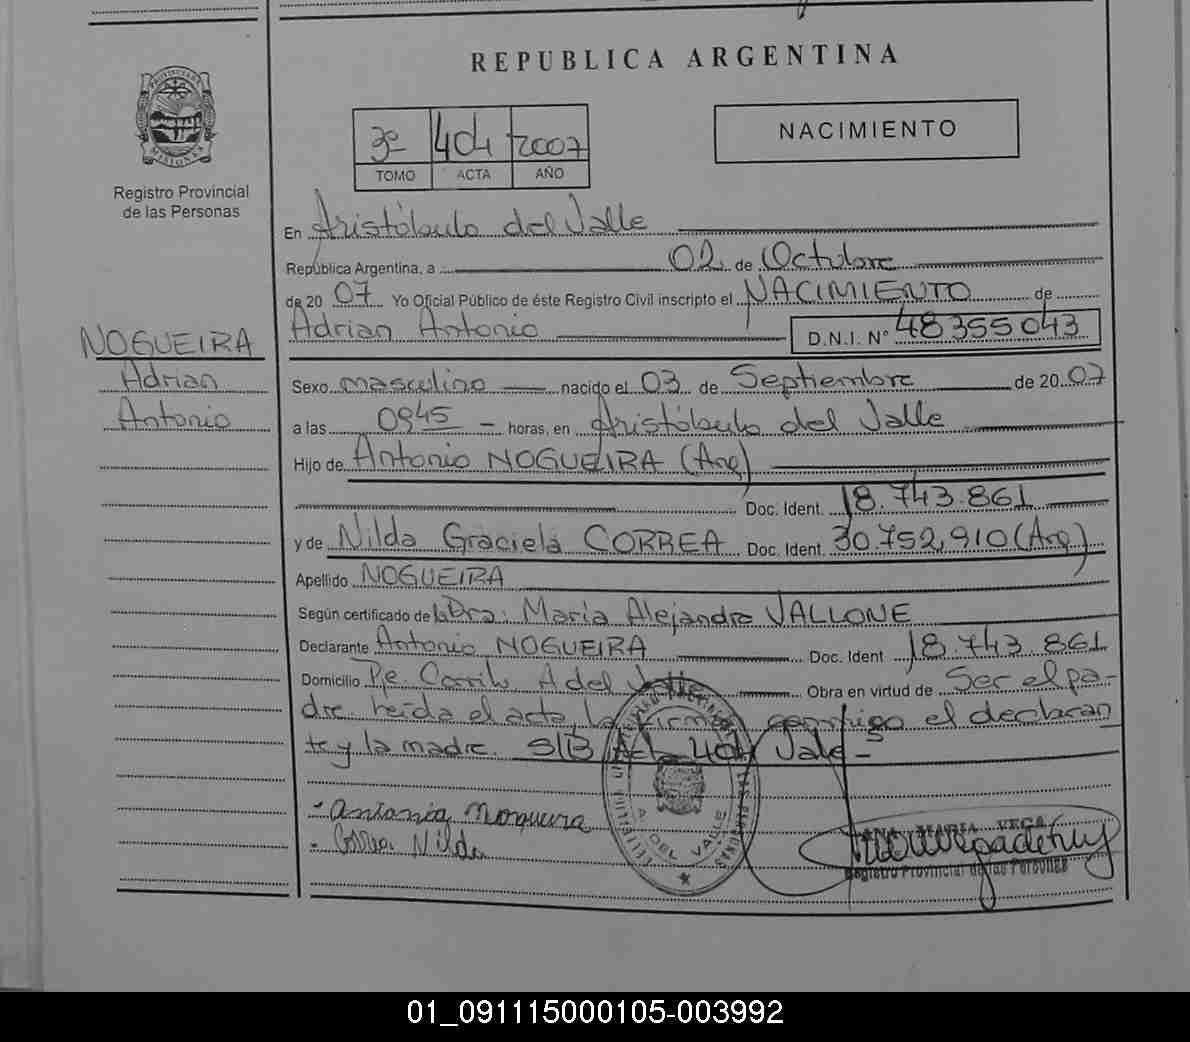 REPUBLICA ARGENTINA
PROVINCIA DE
MISIONES
Registro Provincial
de las Personas
3º 404 2007
TOMO ACTA AÑO
NACIMIENTO
En Aristóbulo del Valle
República Argentina, a 02 de Octubre
de 20 07 Yo Oficial Público de éste Registro Civil inscripto el NACIMIENTO de
Adrian Antonio D.N.I. Nº 48355043
NOGUEIRA
Adrian
Antonio
Sexo masculino nacido el 03 de Septiembre de 20 07
a las 0945 - horas, en Aristóbulo del Valle
Hijo de Antonio NOGUEIRA (Arg)
Doc. Ident. 18.743.861
y de Nilda Graciela CORREA Doc. Ident. 30.752.910 (Arg)
Apellido NOGUEIRA
Según certificado de la Dra: María Alejandra VALLONE
Declarante Antonio NOGUEIRA Doc. Ident 18.743.861
Domicilio A del Valle Obra en virtud de Ser el pa-
dre. leída el acta, la firman conmigo el declaran
te y la madre. S/B Vale-
- Antonio Nogueira
- Correa Nilda
A. DEL VALLE
MARIA VEGA
Registro Provincial de las Personas
01_091115000105-003992